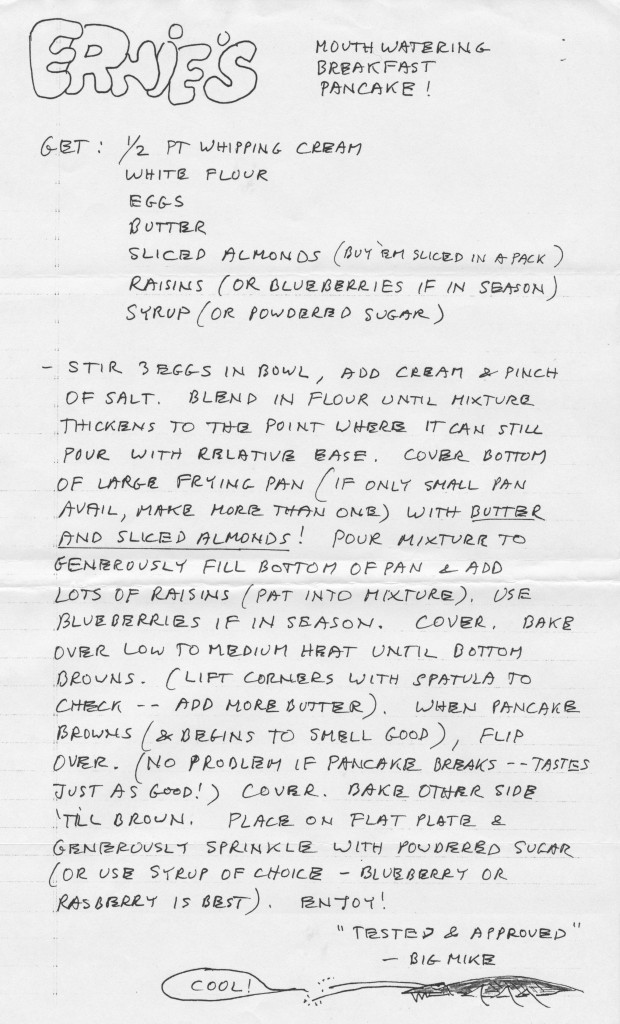 ERNIE'S
MOUTH WATERING
BREAKFAST
PANCAKE!
GET: 1/2 PT WHIPPING CREAM
WHITE FLOUR
EGGS
BUTTER
SLICED ALMONDS (BUY 'EM SLICED IN A PACK)
RAISINS (OR BLUEBERRIES IF IN SEASON)
SYRUP (OR POWDERED SUGAR)
- STIR 3 EGGS IN BOWL, ADD CREAM & PINCH
OF SALT. BLEND IN FLOUR UNTIL MIXTURE
THICKENS TO THE POINT WHERE IT CAN STILL
POUR WITH RELATIVE EASE. COVER BOTTOM
OF LARGE FRYING PAN (IF ONLY SMALL PAN
AVAIL, MAKE MORE THAN ONE) WITH BUTTER
AND SLICED ALMONDS! POUR MIXTURE TO
GENEROUSLY FILL BOTTOM OF PAN & ADD
LOTS OF RAISINS (PAT INTO MIXTURE). USE
BLUEBERRIES IF IN SEASON. COVER. BAKE
OVER LOW TO MEDIUM HEAT UNTIL BOTTOM
BROWNS. (LIFT CORNERS WITH SPATULA TO
CHECK -- ADD MORE BUTTER). WHEN PANCAKE
BROWNS (& BEGINS TO SMELL GOOD), FLIP
OVER. (NO PROBLEM IF PANCAKE BREAKS -- TASTES
JUST AS GOOD!) COVER. BAKE OTHER SIDE
'TILL BROWN. PLACE ON FLAT PLATE &
GENEROUSLY SPRINKLE WITH POWDERED SUGAR
(OR USE SYRUP OF CHOICE - BLUEBERRY OR
RASBERRY IS BEST). ENJOY!
"TESTED & APPROVED"
- BIG MIKE
COOL!